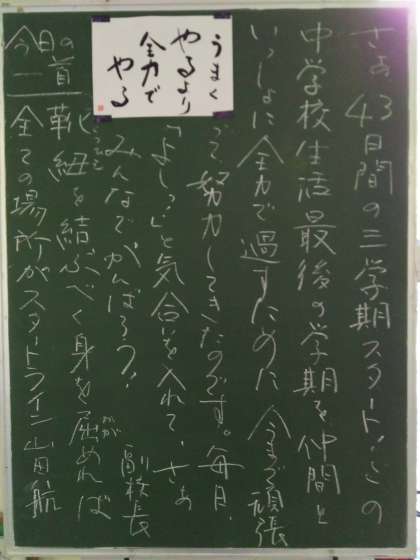 さあ43日間の三学期スタート!この
中学校生活最後の学期を仲間と
いっしょに全力で過すために 今まで頑張
って、努力してきたのです。毎日、
「よしっ」と気合いを入れて、さあ
みんなでがんばろう! 副校長
うまく
やるより
全力で
やる
今日の一首
靴紐を結ぶべく身を屈めれば
かが
全ての場所がスタートライン 山田航